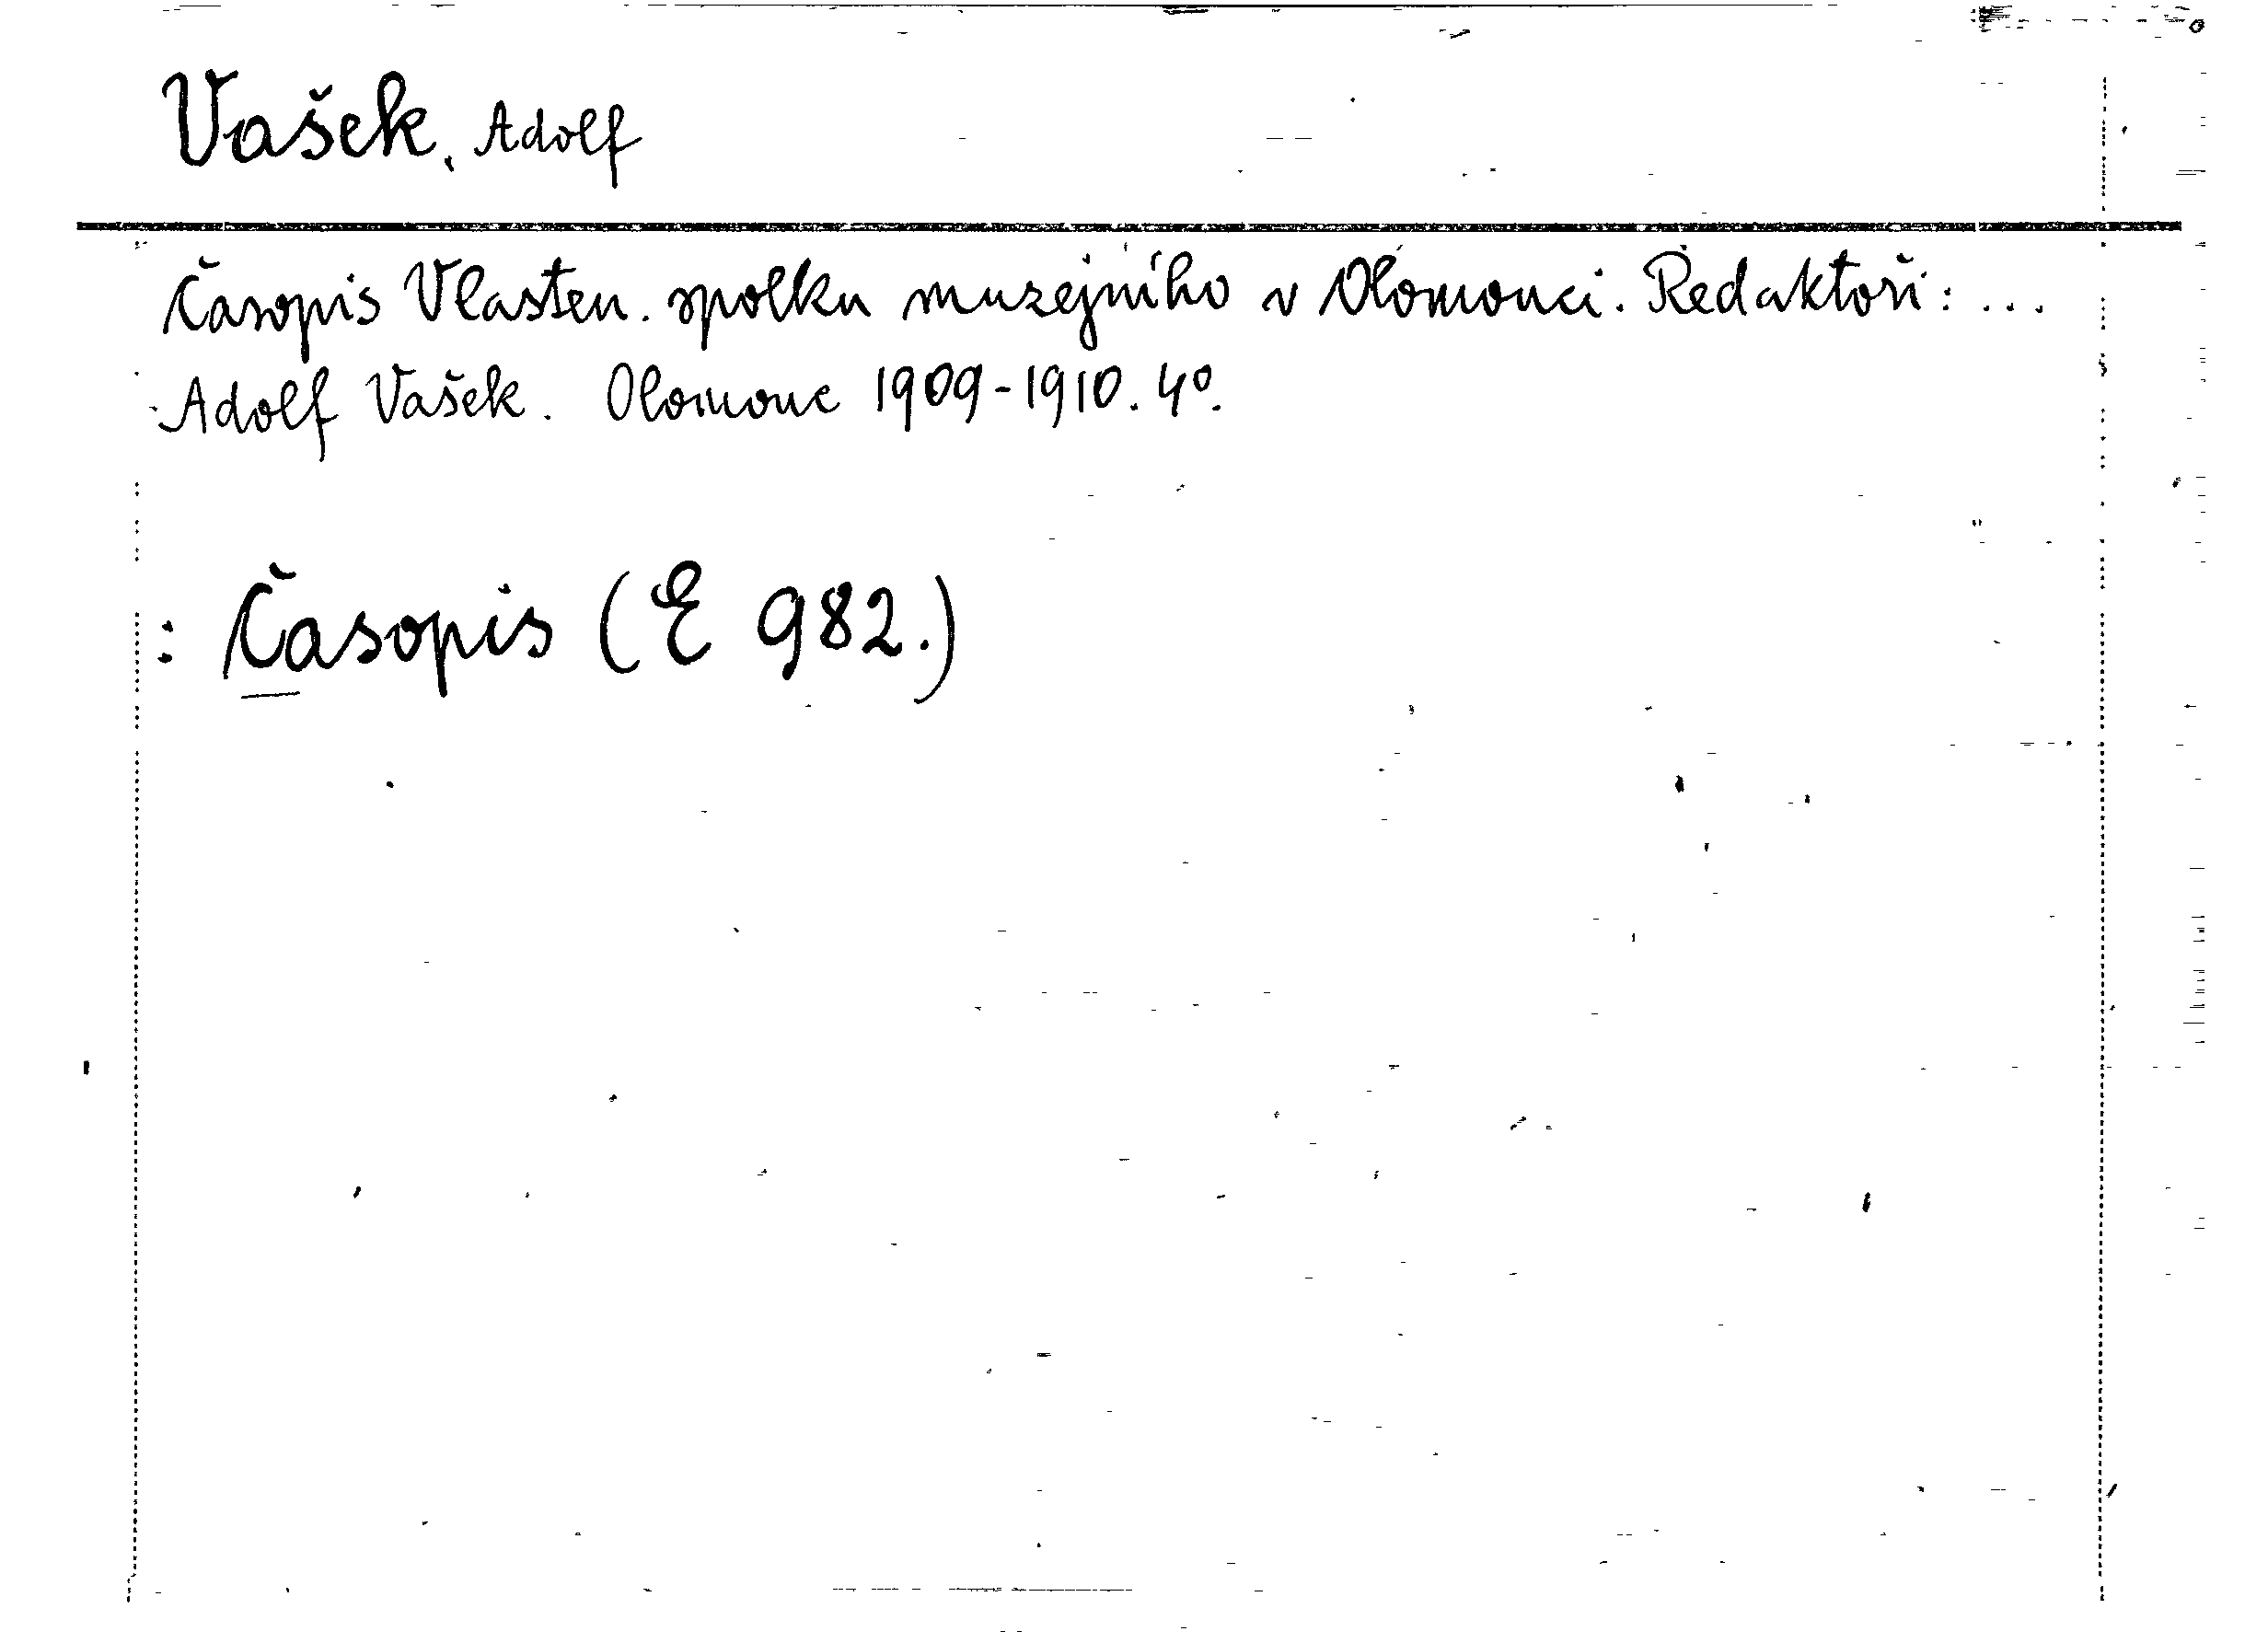 Vašek, Adolf
Časopis Vlasten. spolku muzejního v Olomouci. Redaktoři: ...
Adolf Vašek. Olomouc 1909-1910. 4º.
: Časopis (E 982.)